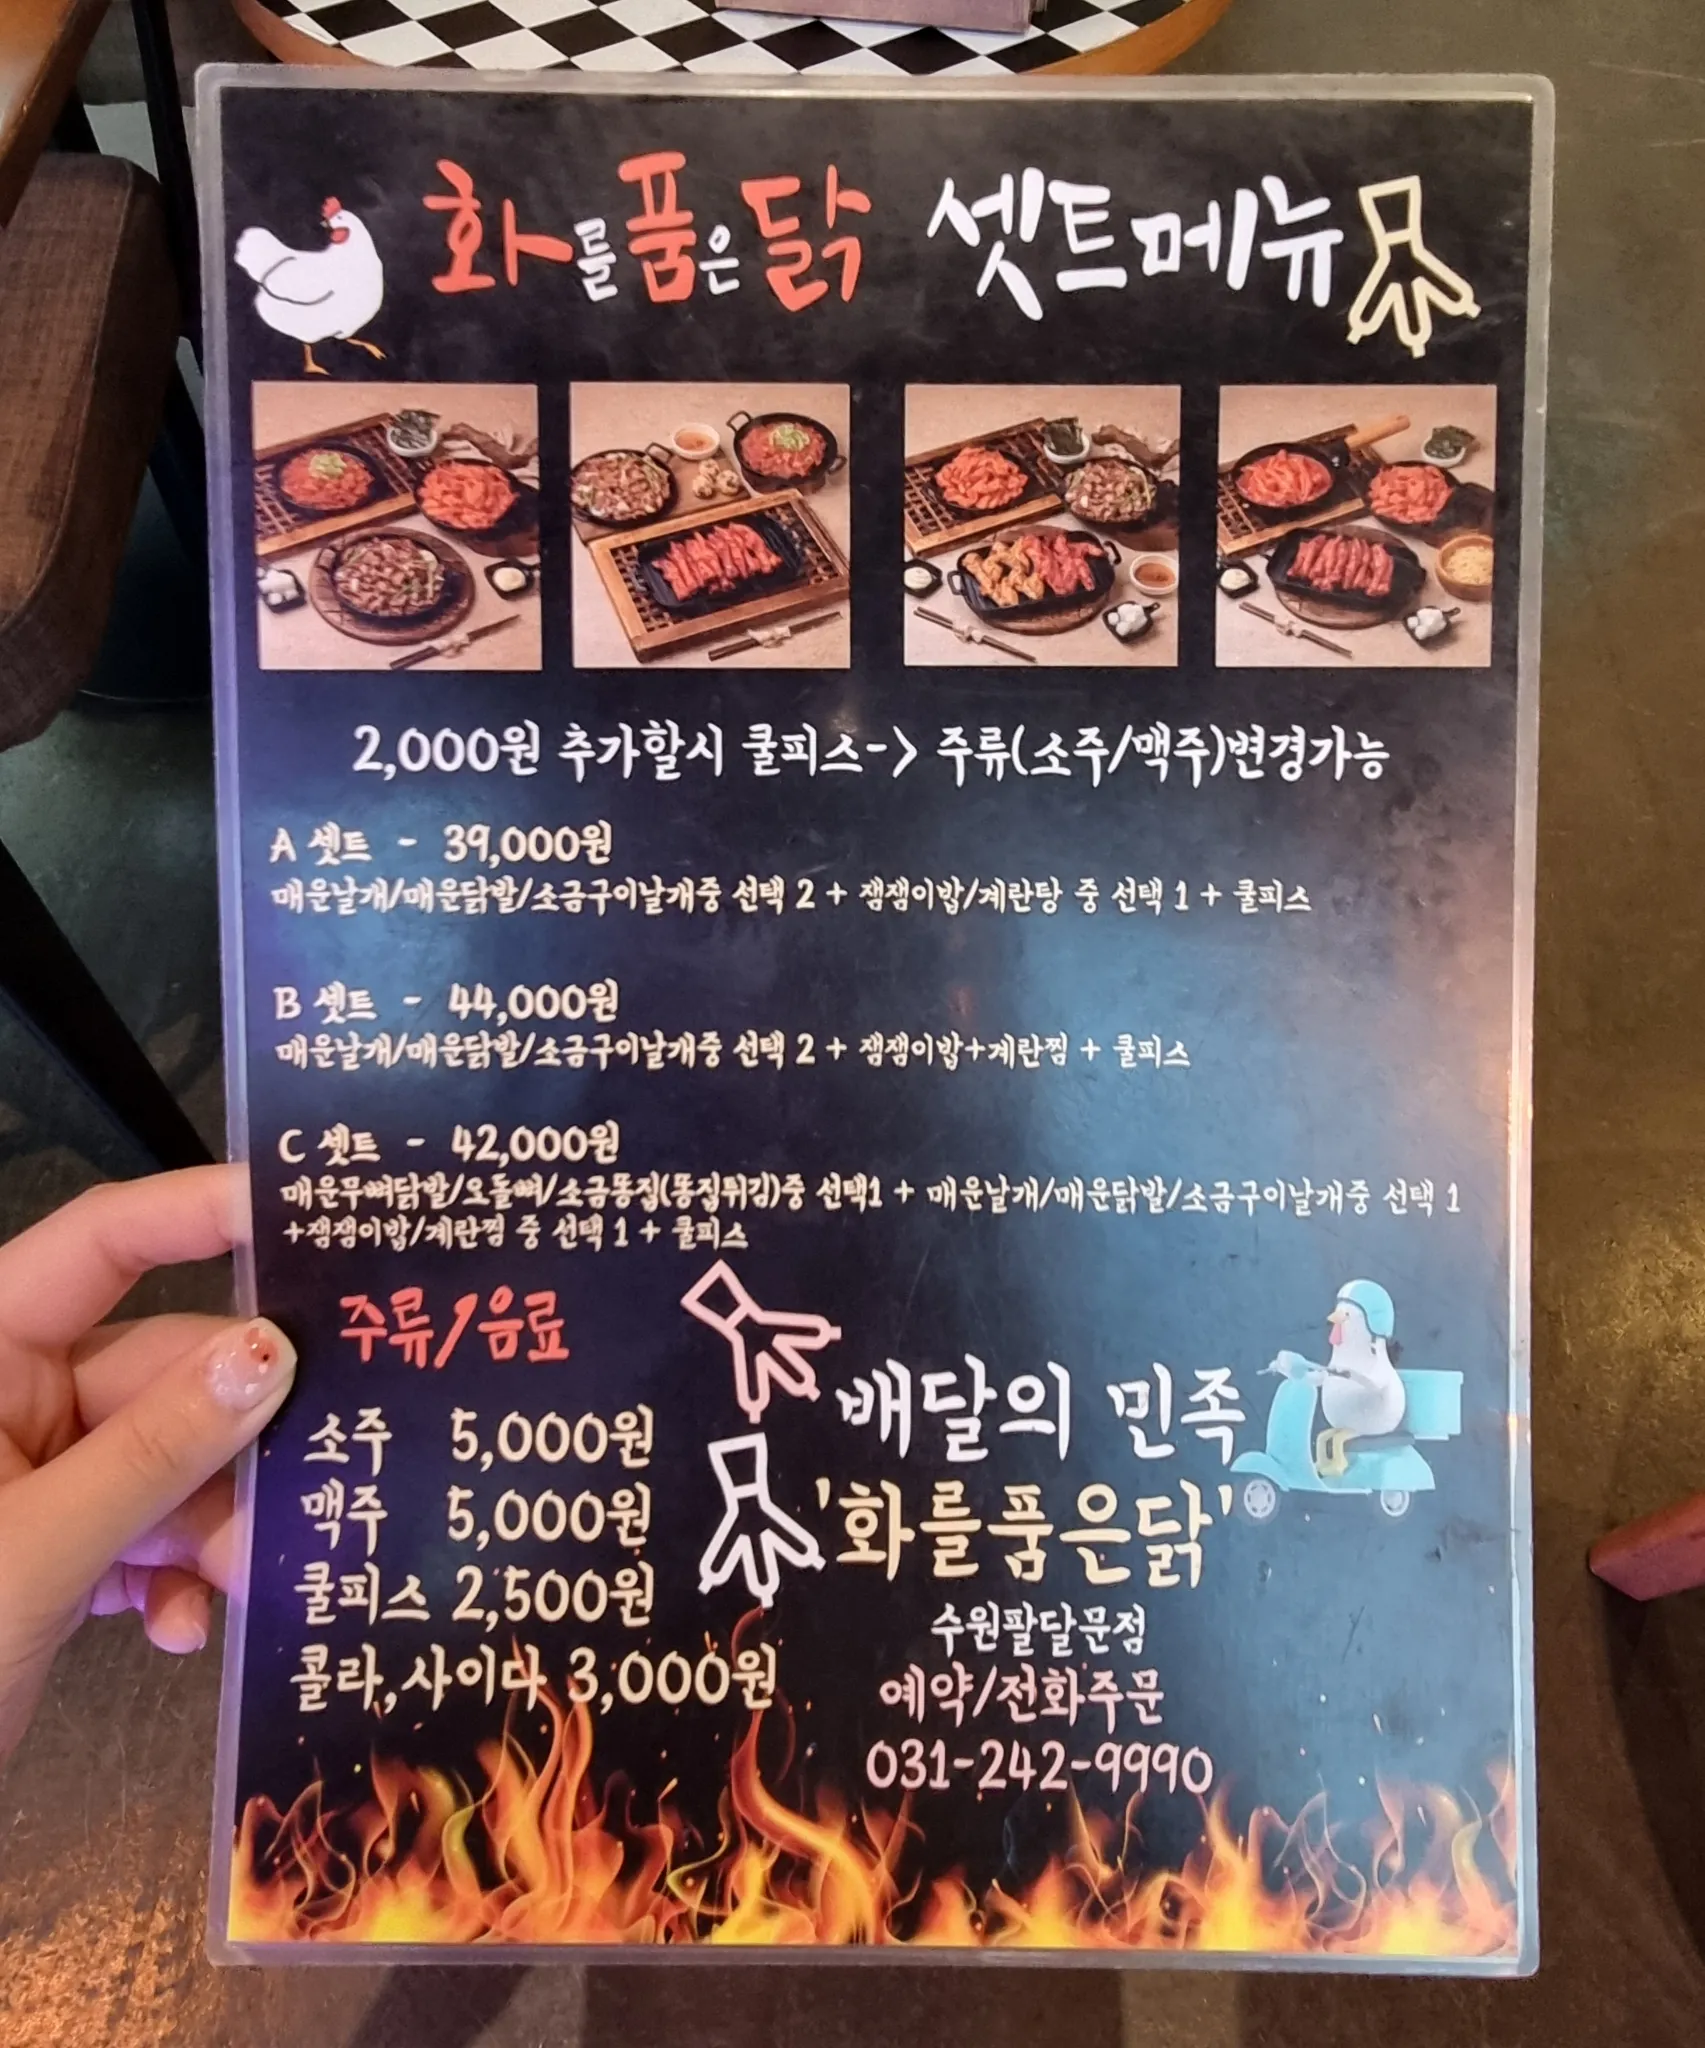 화를품은닭 셋트메뉴
2,000원 추가할시 쿨피스-> 주류(소주/맥주)변경가능
A 셋트 - 39,000원
매운날개/매운닭발/소금구이날개중 선택 2 + 잼잼이밥/계란탕 중 선택 1 + 쿨피스
B 셋트 - 44,000원
매운날개/매운닭발/소금구이날개중 선택 2 + 잼잼이밥+계란찜 + 쿨피스
C 셋트 - 42,000원
매운무뼈닭발/오돌뼈/소금똥집(똥집튀김)중 선택1 + 매운날개/매운닭발/소금구이날개중 선택 1
+잼잼이밥/계란찜 중 선택 1 + 쿨피스
주류/음료
소주 5,000원
맥주 5,000원
쿨피스 2,500원
콜라,사이다 3,000원
배달의 민족
'화를품은닭'
수원팔달문점
예약/전화주문
031-242-9990